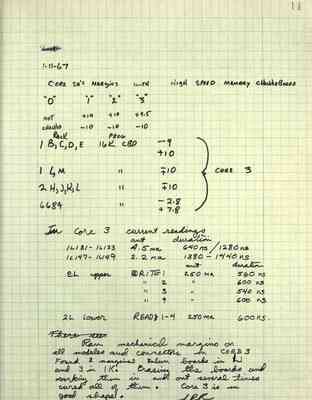 18
1-11-67
CORE 30's MARGINS WITH HIGH SPEED MEMORY
"0" "1" "2" "3"
not +10 +10 +9.5
-10 -10 -10
Rack PROG
1 B,C,D,E 16K CBD -9
+10
1 L,M " ∓10 CORE 3
2 H,J,K,L " ∓10
6684 " -2.8
+7.8
In Core 3 current readings
amt duration
1L181-1L183 4.5 ma 640 ns/1280 ns
1L147-1L149 2.2 ma 1380-1440 ns
amt duration
2L upper WRITE 1 250 MA 560 ns
" 2 " 600 ns
" 3 " 540 ns
" 4 " 600 ns
2L lower READ 1-4 250 ma 600 ns.
Ran mechanical margins on
all modules and connectors in CORE 3
Found 2 marginal boards in
and 3 in 1K. Erasing the boards and
working them in and out several times
cured all of them. Core 3 is in
good shape.